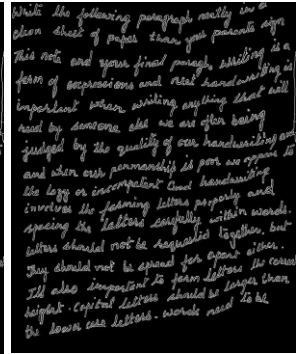 Write the following paragraph neatly in a
clean sheet of paper than your parents sign
This note and your final paragh writing is a
form of expressions and neat handwriting is
important when writing anything that will
read by someone else we are often being
judged by the quality of our handwriting and
and when our penmanship is poor we appear to
the lazy or incompetent Good handwriting
involves the forming letters properly and
spacing the letters carefully within words.
letters should not be squashed together, but
They should not be spread far apart either.
It's also important to form letters the correct
heighet. Capital letters should be larger than
the lower case letters. words need to be